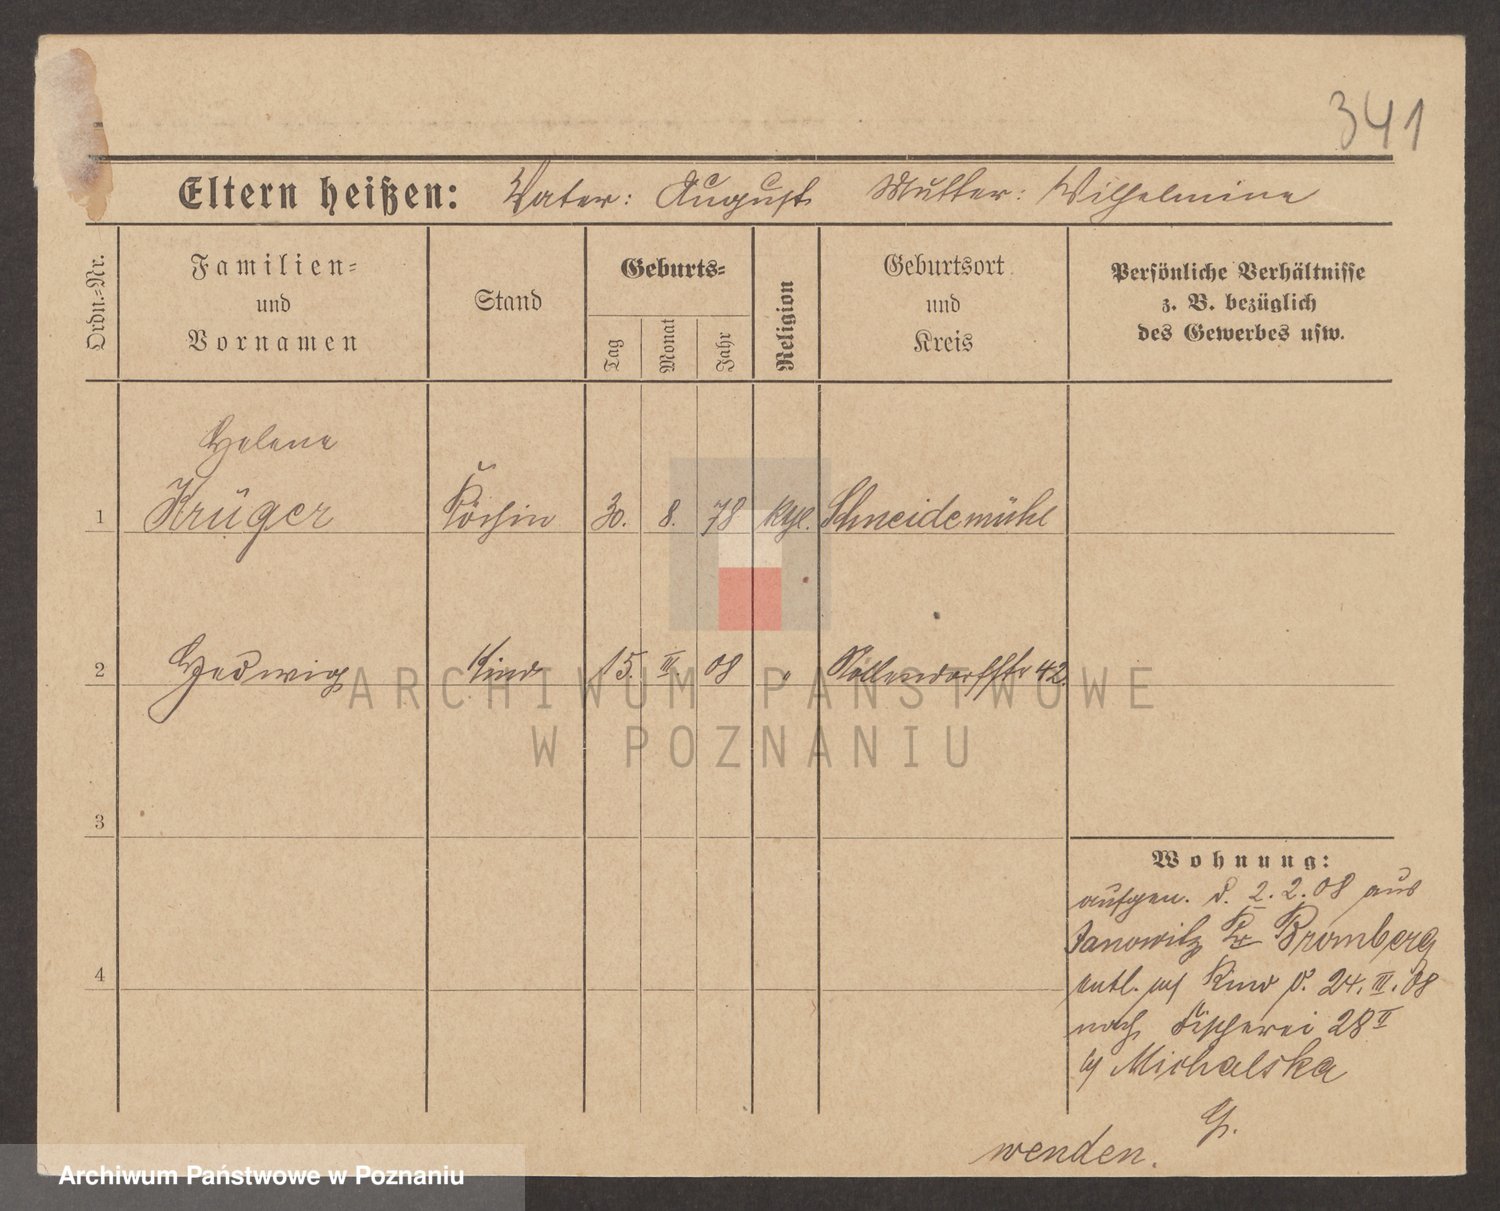 341
Eltern heißen: Vater: August Mutter: Wilhelmine
Ordn.-Nr.
Familien-
und
Vornamen
Stand
Geburts-
Tag
Monat
Jahr
Religion
Geburtsort
und
Kreis
Persönliche Verhältnisse
z. B. bezüglich
des Gewerbes usw.
Helene
1 Krüger Köchin 30. 8. 78 Schneidemühl
2 Hedwig Kind 15. III. 08 " Nollendorfstr 42.
3
4
Wohnung:
aufgen. d. 2.2.08 aus
Janowitz Kr Bromberg
entl. mit Kind d. 24. III. 08
nach Fischerei 28 II
bei Michalska
G.
wenden.
ARCHIWUM PAŃSTWOWE
W POZNANIU
Archiwum Państwowe w Poznaniu